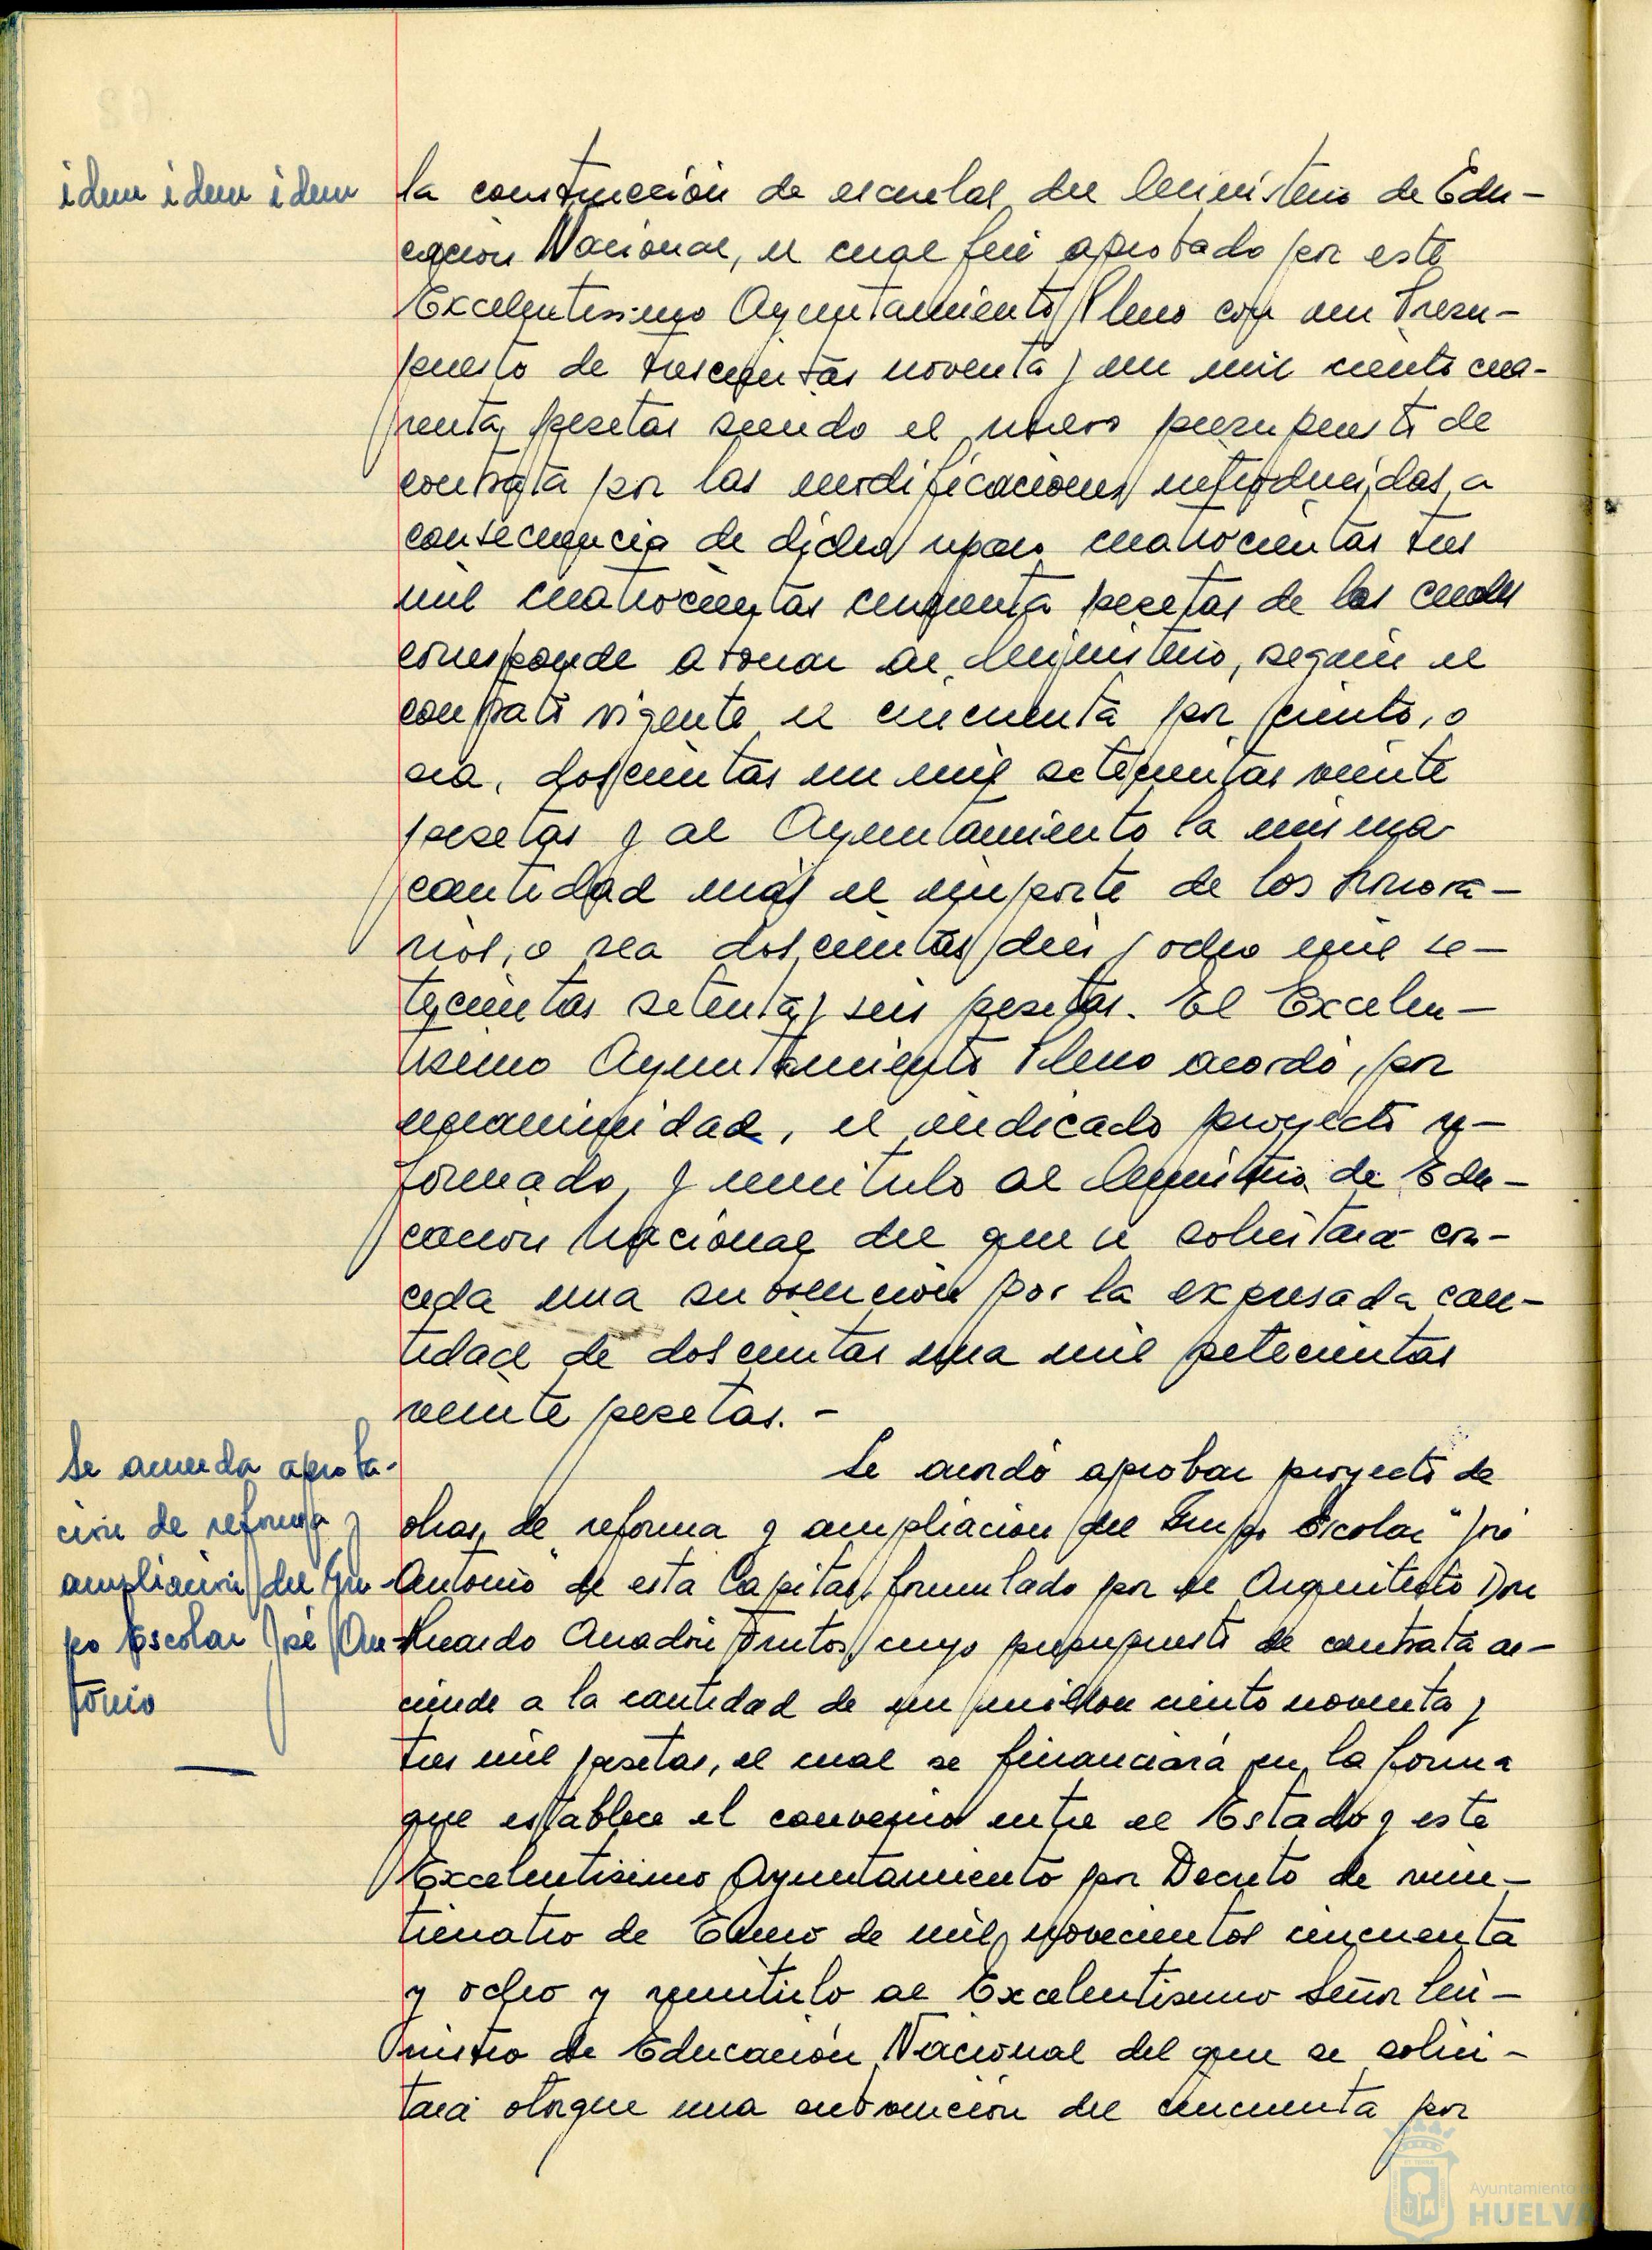 idem idem idem
la construcción de escuelas del Ministerio de Edu-
cación Nacional, el cual fué aprobado por este
Excelentísimo Ayuntamiento Pleno con un Presu-
puesto de trescientas noventa y un mil ciento cua-
renta pesetas siendo el nuevo presupuesto de
contrata por las modificaciones introducidas a
consecuencia de dicho reparo cuatrocientas tres
mil cuatrocientas cuarenta pesetas de las cuales
corresponde abonar al Ministerio, según el
contrato vigente el cincuenta por ciento, o
sea, doscientas un mil setecientas veinte
pesetas y al Ayuntamiento la misma
cantidad más el importe de los honora-
rios, o sea doscientas diez y ocho mil se-
tecientas setenta y seis pesetas. El Excelen-
tísimo Ayuntamiento Pleno acordó, por
unanimidad, el indicado proyecto re-
formado, y remitirlo al Ministerio de Edu-
cación Nacional del que se solicitará con-
ceda una subvención por la expresada can-
tidad de doscientas una mil setecientas
veinte pesetas.-
Se acuerda aproba-
ción de reforma y
ampliación del Gru-
po Escolar José An-
tonio
Se acordó aprobar proyecto de
obras de reforma y ampliación del Grupo Escolar "José
Antonio" de esta Capital, formulado por el Arquitecto Don
Ricardo Anadón Frutos, cuyo presupuesto de contrata as-
ciende a la cantidad de un millón ciento noventa y
tres mil pesetas, el cual se financiará en la forma
que establece el convenio entre el Estado y este
Excelentísimo Ayuntamiento por Decreto de vein-
ticuatro de Enero de mil novecientos cincuenta
y ocho y remitirlo al Excelentísimo Señor Mi-
nistro de Educación Nacional del que se solici-
tará otorgue una subvención del cincuenta por
Ayuntamiento de
HUELVA